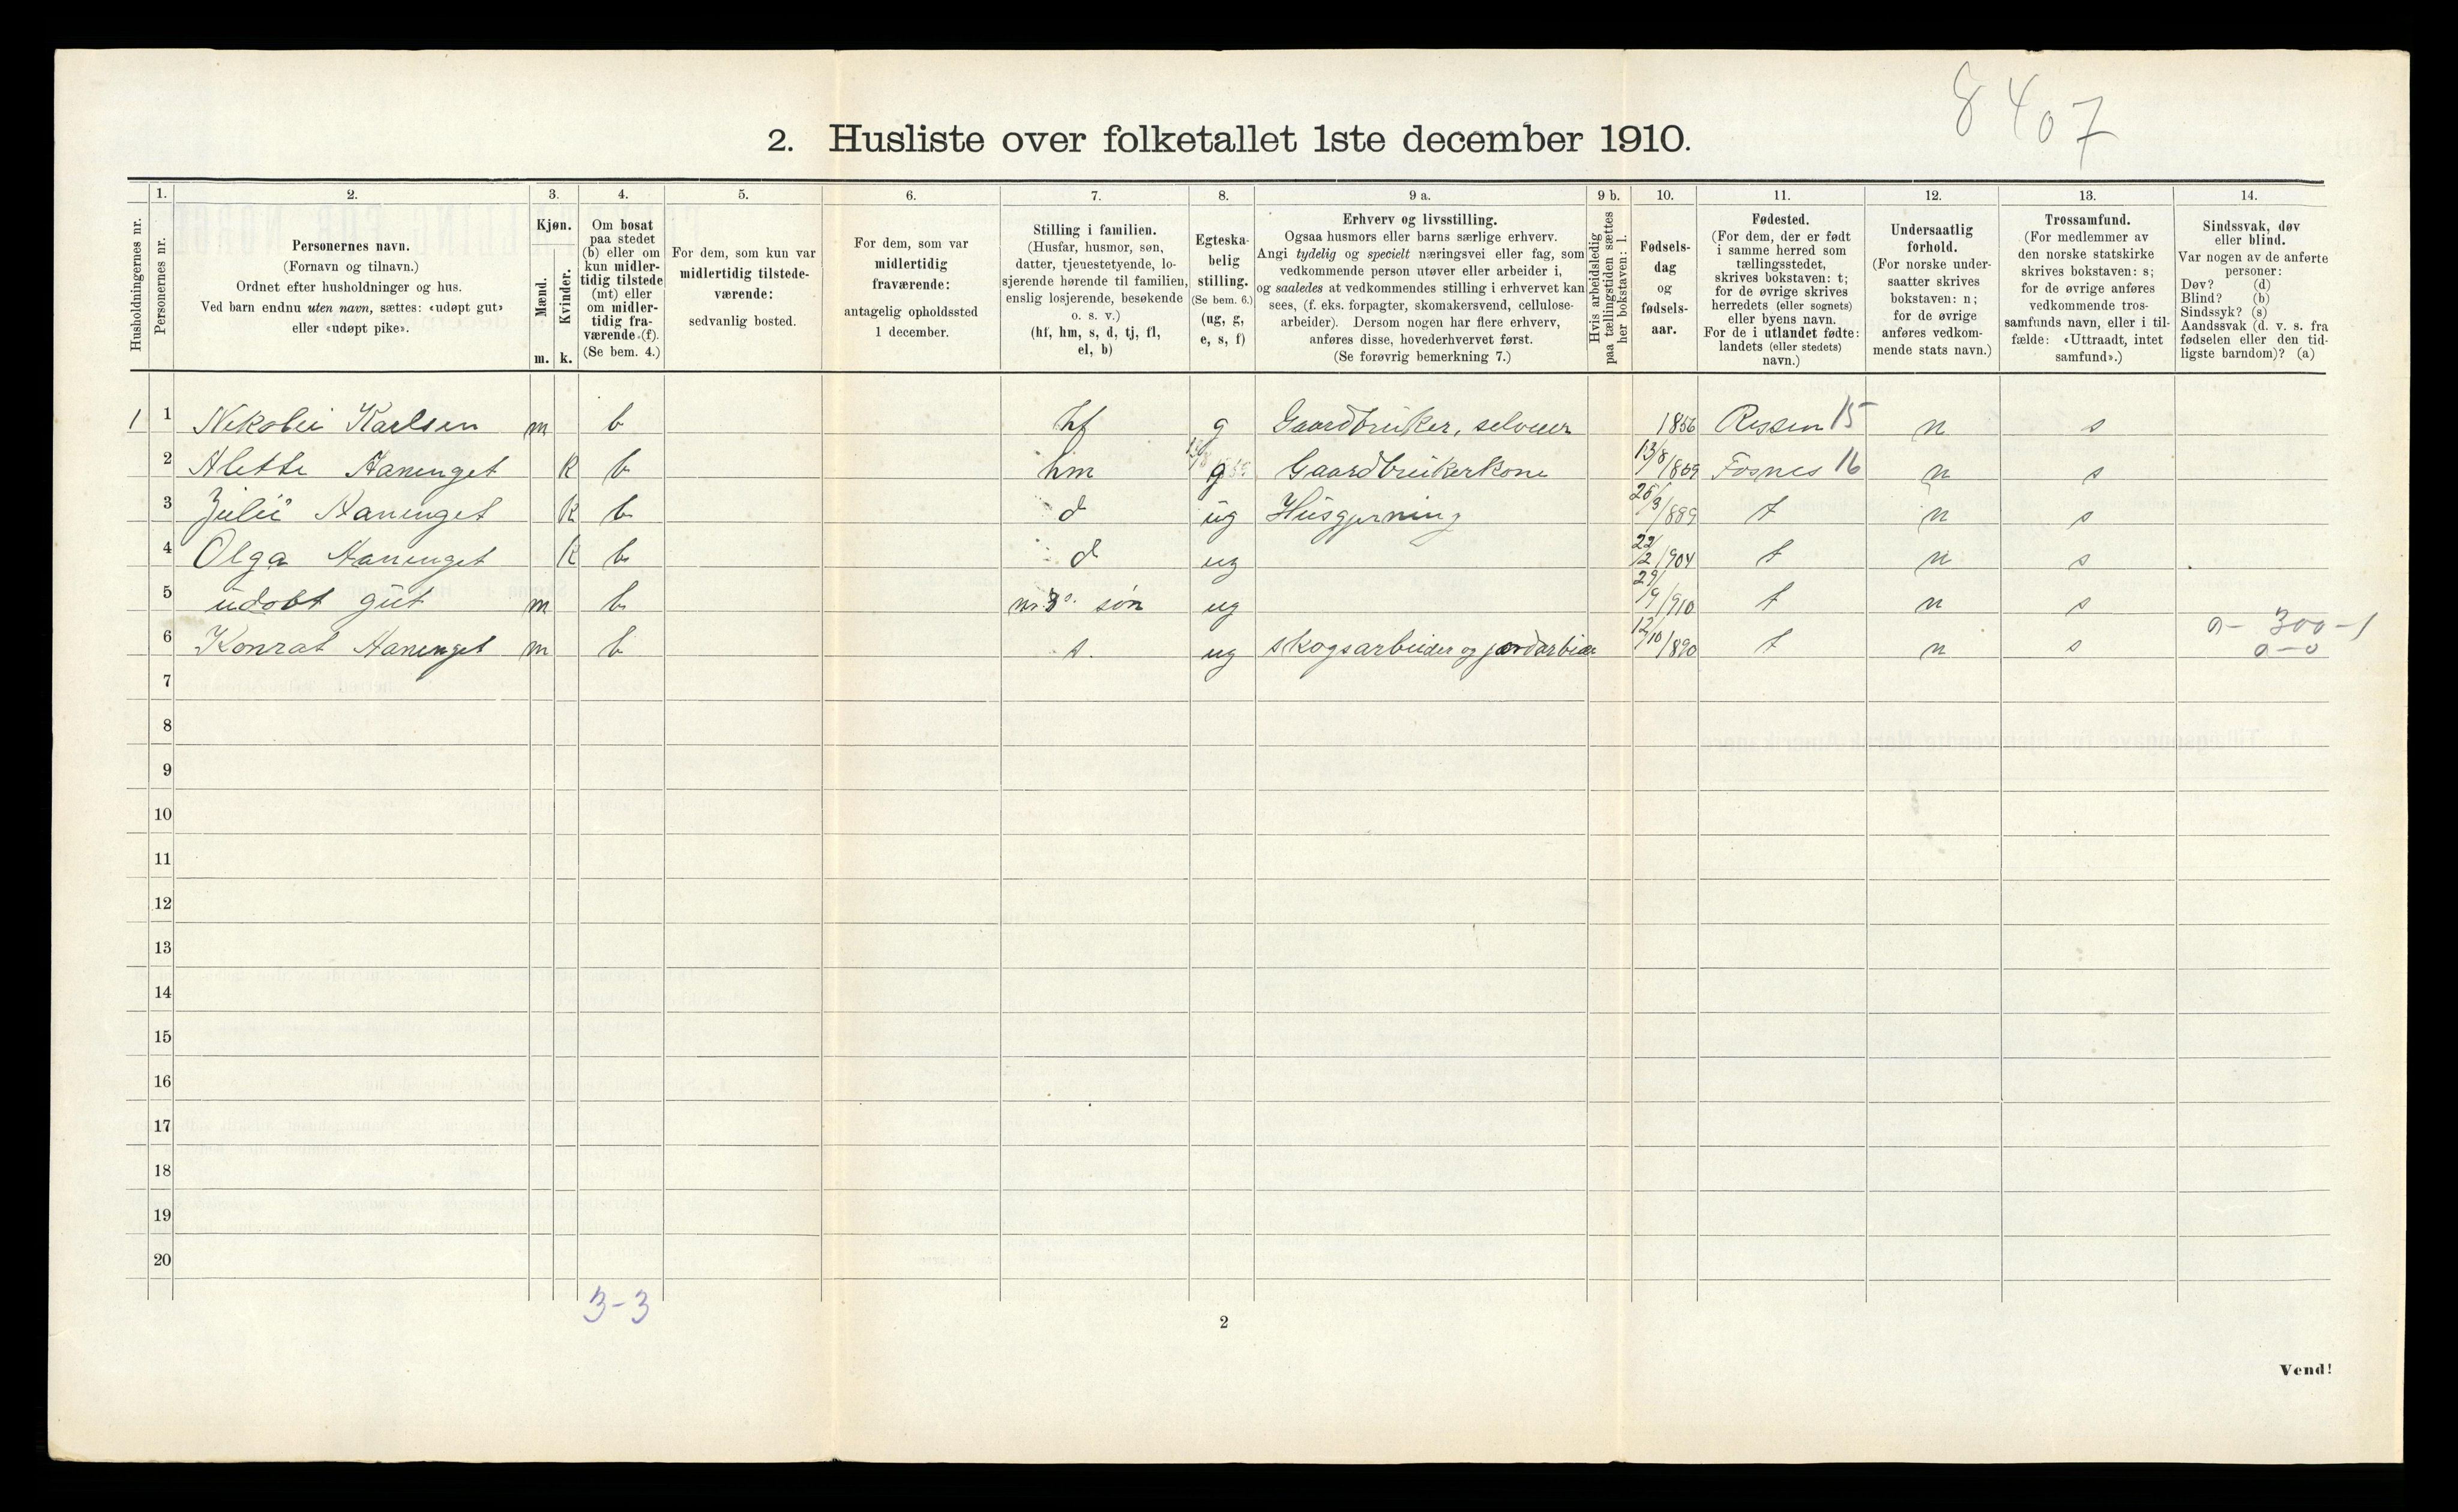 8407
2. Husliste over folketallet 1ste december 1910.
Husholdningernes nr.
1.
Personernes nr.
2.
Personernes navn.
(Fornavn og tilnavn.)
Ordnet efter husholdninger og hus.
Ved barn endnu uten navn, sættes: «udøpt gut»
eller «udøpt pike».
3.
Kjøn.
Mænd.
m.
Kvinder.
k.
4.
Om bosat
paa stedet
(b) eller om
kun midler-
tidig tilstede
(mt) eller
om midler-
tidig fra-
værende (f).
(Se bem. 4.)
5.
For dem, som kun var
midlertidig tilstede-
værende:
sedvanlig bosted.
6.
For dem, som var
midlertidig
fraværende:
antagelig opholdssted
1 december.
7.
Stilling i familien.
(Husfar, husmor, søn,
datter, tjenestetyende, lo-
sjerende hørende til familien,
enslig losjerende, besøkende
o. s. v.)
(hf, hm, s, d, tj, fl,
el, b)
8.
Egteska-
belig
stilling.
(Se bem. 6.)
(ug, g,
e, s, f)
9 a.
Erhverv og livsstilling.
Ogsaa husmors eller barns særlige erhverv.
Angi tydelig og specielt næringsvei eller fag, som
vedkommende person utøver eller arbeider i,
og saaledes at vedkommendes stilling i erhvervet kan
sees, (f. eks. forpagter, skomakersvend, cellulose-
arbeider). Dersom nogen har flere erhverv,
anføres disse, hovederhvervet først.
(Se forøvrig bemerkning 7.)
9 b.
Hvis arbeidsledig
paa tællingstiden sættes
her bokstaven: l.
10.
Fødsels-
dag
og
fødsels-
aar.
11.
Fødested.
(For dem, der er født
i samme herred som
tællingsstedet,
skrives bokstaven: t;
for de øvrige skrives
herredets (eller sognets)
eller byens navn.
For de i utlandet fødte:
landets (eller stedets)
navn.)
12.
Undersaatlig
forhold.
(For norske under-
saatter skrives
bokstaven: n;
for de øvrige
anføres vedkom-
mende stats navn.)
13.
Trossamfund.
(For medlemmer av
den norske statskirke
skrives bokstaven: s;
for de øvrige anføres
vedkommende tros-
samfunds navn, eller i til-
fælde: «Uttraadt, intet
samfund».)
14.
Sindssvak, døv
eller blind.
Var nogen av de anførte
personer:
Døv? (d)
Blind? (b)
Sindssyk? (s)
Aandssvak (d. v. s. fra
fødselen eller den tid-
ligste barndom)? (a)
1 1 Nikolei Karlsen m b hf g Gaardbruker, selveier 1856 Rissen 15 n s
2 Alette Hanenget k b hm g Gaardbrukerkone 13/8/869 Fosnes 16 n s
3 Julii Hanenget k b d ug Husgjerning 26/3/889 t n s
4 Olga Hanenget k b d ug 22/2/904 t n s
5 udobt gut m b søn ug 29/9/910 t n s
0 - 300 - 1
6 Konrat Hanenget m b s. ug skogsarbeider og jordarbeider 12/10/890 t n s 0 - 0
7
8
9
10
11
12
13
14
15
16
17
18
19
20
3-3
2
Vend!